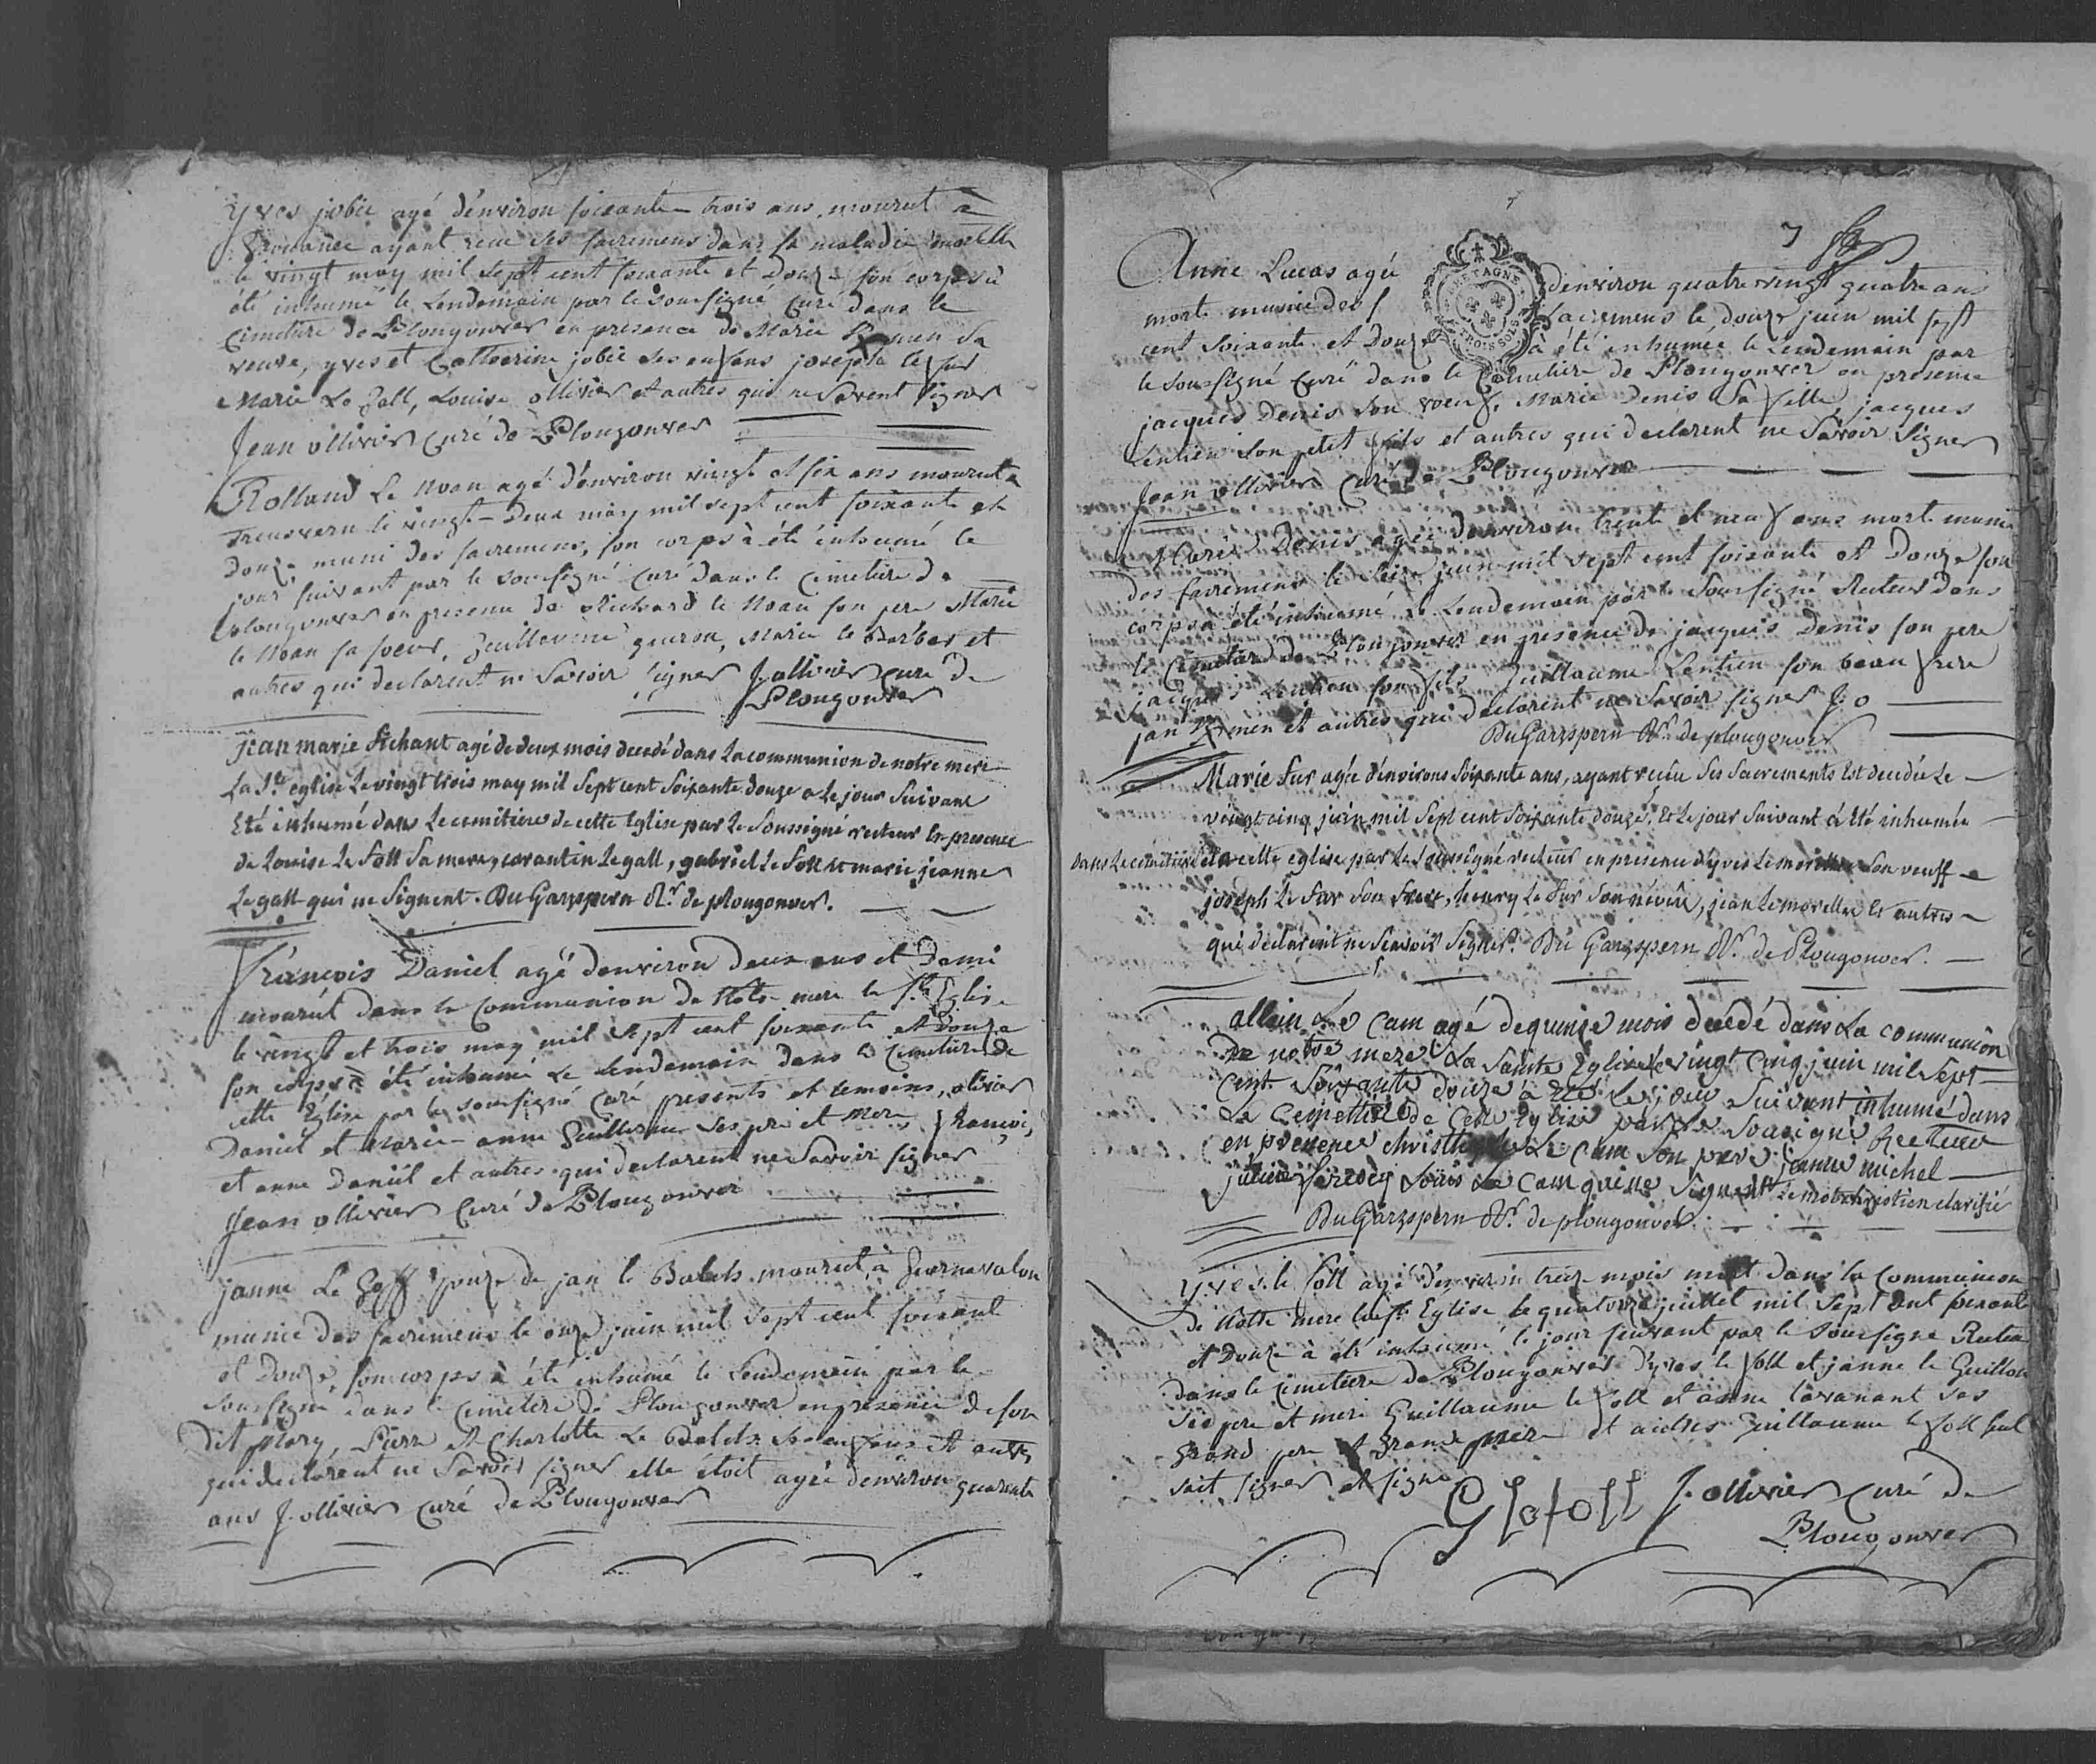 yves jobic agé d'environ soixante trois ans, mourut à
ayant recu ses sacremens dans sa maladie mortelle
le vingt may mil sept cent soixante et douze son corps à
été inhumé le Lendemain par le soussigné Curé dans le
Cimetiere de Plougonver en presence de Marie sa
veuve, yves et Catherine jobic ses enfans joseph le fur
Marie Le gall, Louise ollivier et autres qui ne savent signer
Jean ollivier Curé de Plougonver
Rolland Le Moan agé d'environ vingt et six ans mourut à
le vingt-deux may mil sept cent soixante et
douze muni des sacremens, son corps à été inhumé le
jour suivant par le soussigné Curé dans le Cimetiere de
plougonver en presence de Richard le Moan son pere Marie
le Moan sa soeur, Marie le Barber et
autres qui declarent ne savoir signer J. ollivier curé de
Plougonver
jean marie fichant agé de deux mois decedé dans La communion de notre mere
La Ste eglise Le vingt trois may mil Sept cent Soixante douze a Le jour Suivant
Eté inhumé dans Le cemitiere de cette Eglise par Le Soussigné recteur En presence
de Louise Le foll Sa mere, corantin Le gall, gabriel Le foll et marie jeanne
Le gall qui ne Signent. Du Garzspern Rr. de plougonver.
François Daniel agé d'environ deux ans et demi
mourut dans la Communion de Notre mere la Ste Eglise
le vingt et trois may mil sept cent soixante et douze
son corps à été inhumé Le lendemain dans le Cimetiere de
cette Eglise par le soussigné Curé presents et temoins, olivier
Daniel et Marie-anne Guillerme ses pere et Mere, françois
et anne Daniel et autres qui declarent ne savoir signer
Jean ollivier Curé de Plougonver
janne Le Goff épouze de jan le Balch mourut à Guernevalon
munie des sacremens le onze juin mil sept cent soixant
et Douze, son corps à été inhumé le Lendemain par le
soussigné dans le Cimetiere de Plougonver en presence de son
dit mary, Pierre et Charlotte Le Balch ses enfans et autres
qui declarent ne savoir signer elle étoit agée d'environ quarente
ans J. ollivier Curé de Plougonver
7
Anne Lucas agée d'environ quatre vingt quatre ans
BRETAGNE
morte munie des sacremens le douze juin mil sept
cent soixante et Douze à été inhumée le Lendemain par
le soussigné Curé dans le Cimetiere de Plougonver en presence
jacques Denis son veuf, Marie Denis sa fille, jacques
Lentien son petit fils et autres qui declarent ne savoir signer
Jean ollivier Curé de Plougonver
Marie Denis agée d'environ trente et neuf ans morte munie
des sacremens le seize juin mil sept cent soixante et Douze son
corps à été inhumé le Lendemain par le soussigné Recteur dans
le Cimetiere de Plougonver en presence de jacques Denis son pere
jacques Lentien son fils Guillaume Lentien son beau frere
jan et autres qui declarent ne savoir signer J. o
Du Garzspern Rr. de plougonver
Marie fur agée d'environs soixante ans, ayant reçu Ses Sacrements Est decedée Le
vingt cinq juin mil Sept cent Soixante douze, Et Le jour Suivant a Eté inhumée
dans Le cemitiere de cette eglise par Le Soussigné recteur en presence d'yves Le morellec Son veuff
joseph Le fur Son frere, henry Le fur Son neveu, jean Le morellec Et autres
qui declarent ne Scavoir Signer. Du Garzspern Rr. de Plougonver.
allain Le Cam agé de quinze mois decedé dans La communion
De notre mere La Sainte Eglise Le vingt cinq juin mil Sept
cent Soixante douze a Eté Le jour Suivant inhumé dans
Le Cemettiere de Cette Eglise par Le Sousigné Recteur
en presence Le Cam Son pere jeanne michel
Loüis Le Cam qui ne Signent Le mot clarifié
Du Garzspern Rr. de plougonver.
yves le foll agé d'environ treize mois mort dans la Communion
de Notre Mere la Ste Eglise le quatorze juillet mil sept cent soixante
et Douze à été inhumé le jour suivant par le soussigné Recteur
dans le Cimetiere de Plougonver d'yves le foll et janne le Guillou
ses pere et mere Guillaume le foll et anne Lavanant ses
grand pere et grande mere et autres Guillaume le foll seul
sait signer et signe
G le foll J. ollivier Curé de
Plougonver